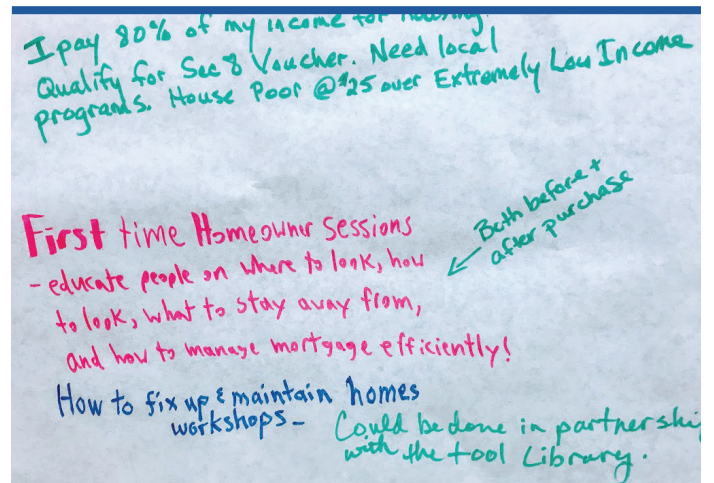 I pay 80% of my income for housing.
Qualify for Sec 8 Voucher. Need local
programs. House Poor @ $25 over Extremely Low Income
First time Homeowner Sessions
- educate people on where to look, how
to look, what to stay away from,
and how to manage mortgage efficiently!
Both before +
after purchase
How to fix up & maintain homes
workshops -
Could be done in partnership
with the tool Library.